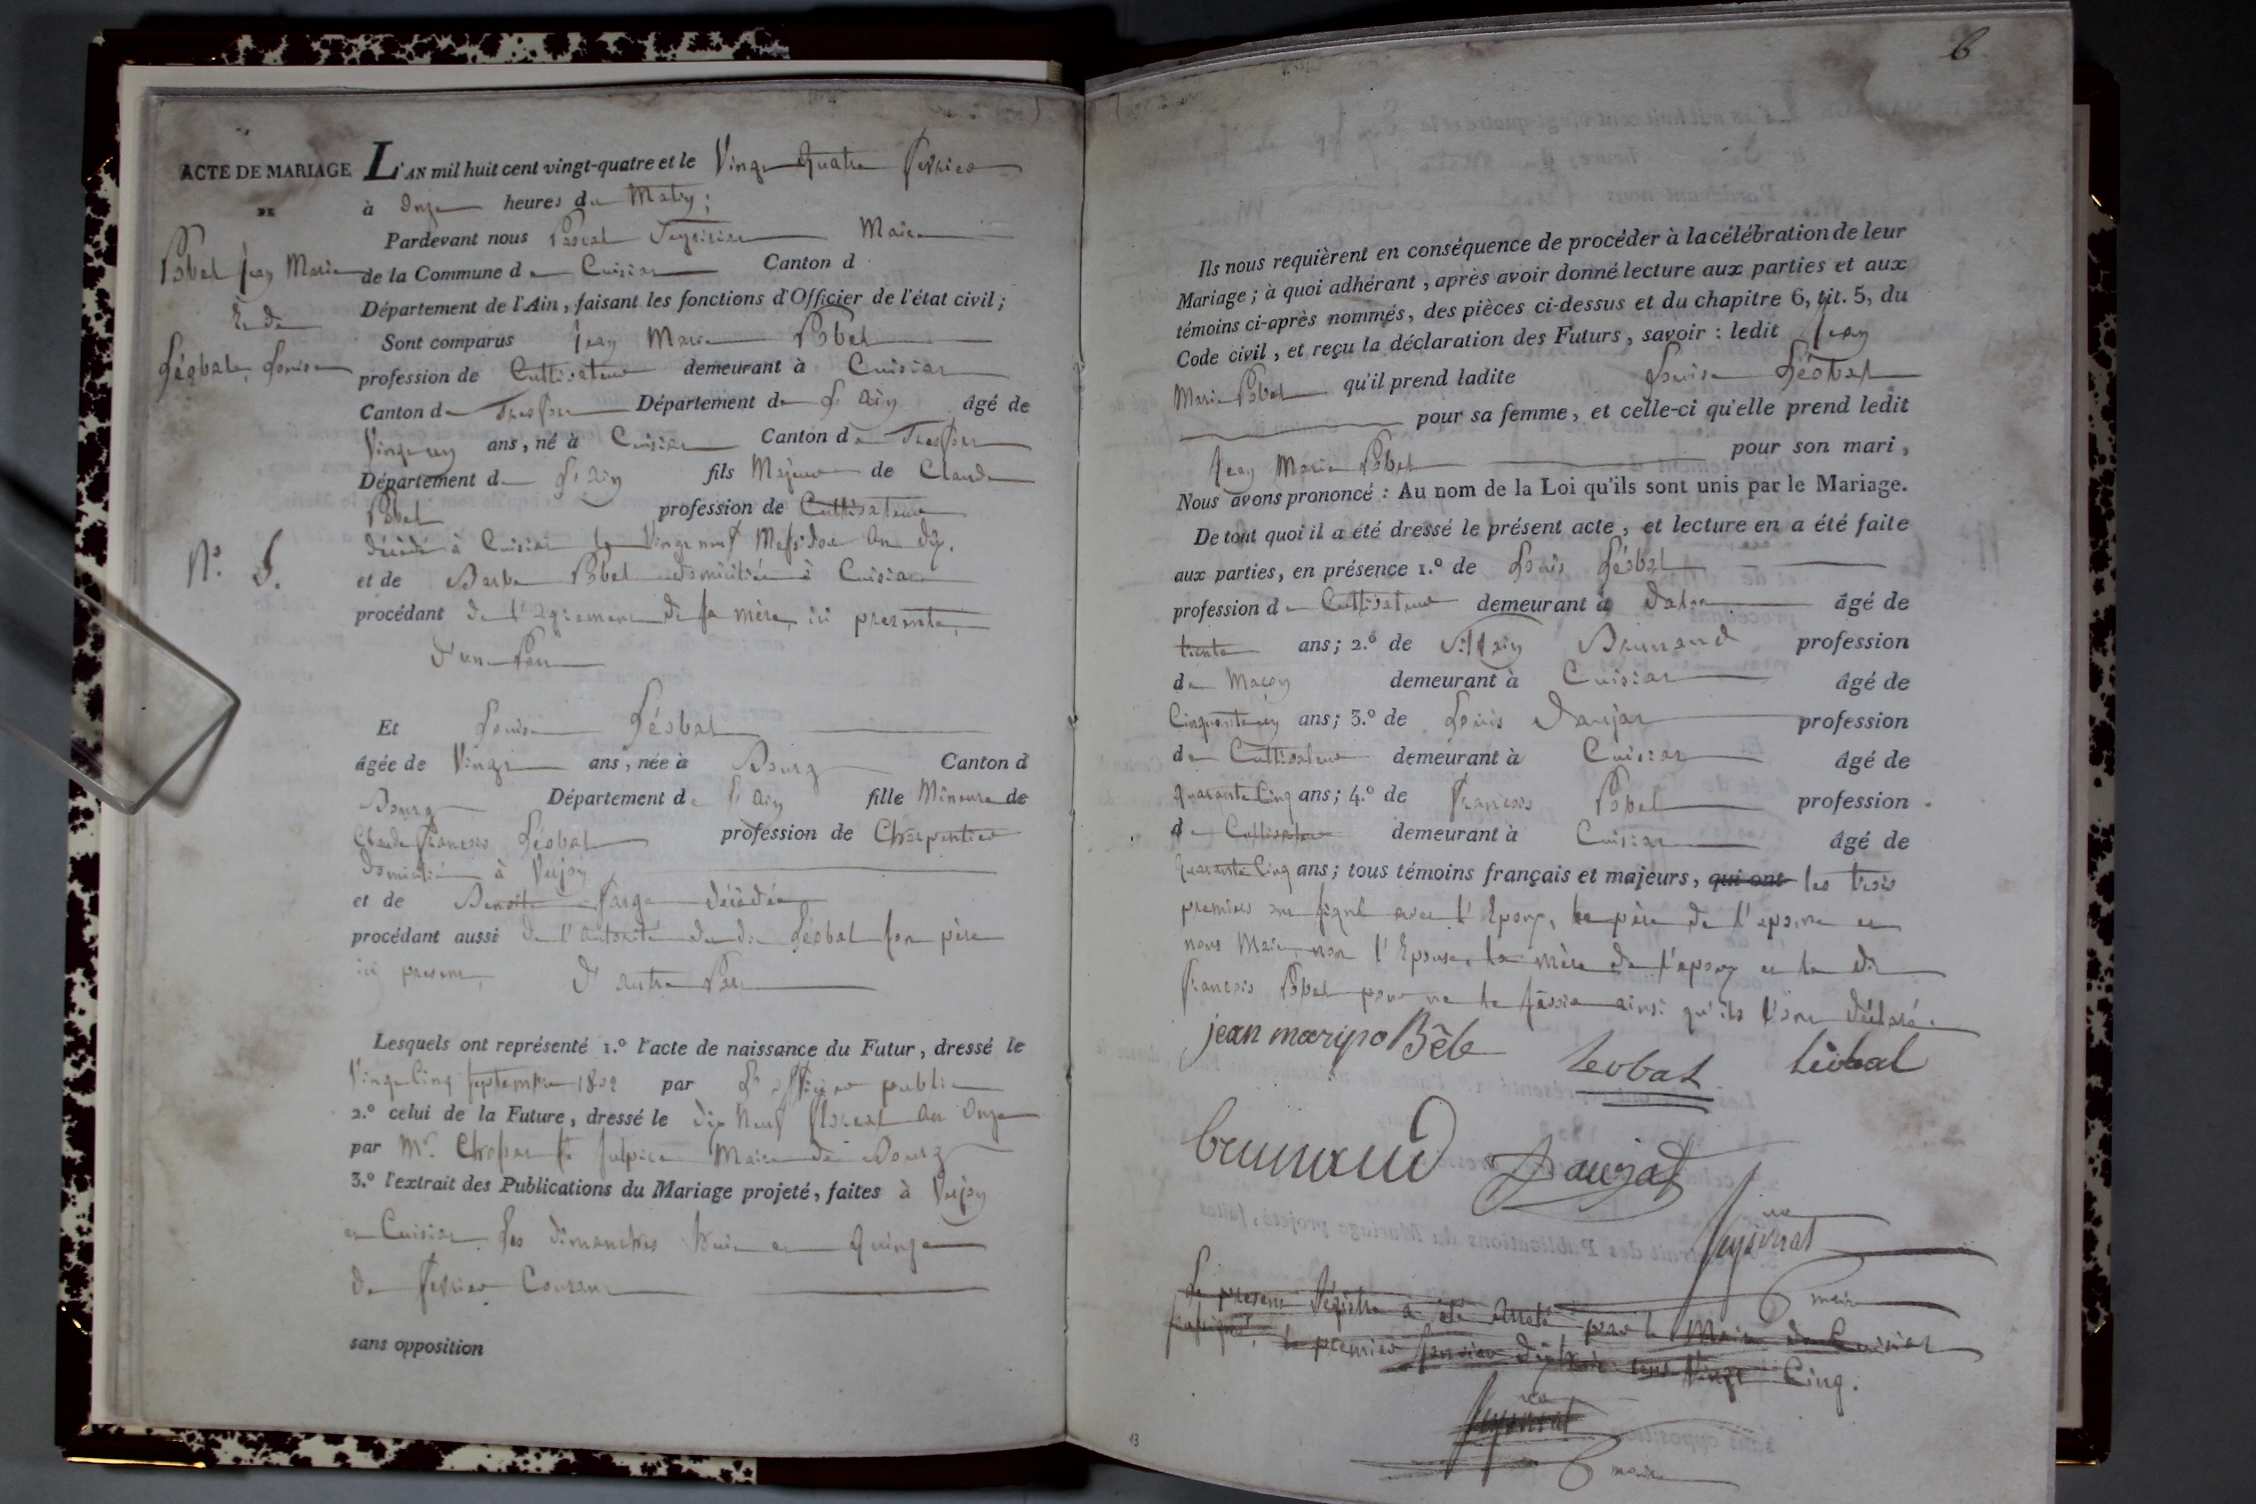 ACTE DE MARIAGE
DE
Pobel Jean Marie
Et de
Léobal, Louise
N.o 5.
L'AN mil huit cent vingt-quatre et le Vingt quatre fevrier
à Onze heures du Matin;
Pardevant nous Pascal Maire
de la Commune de Cuisiat Canton d
Département de l'Ain, faisant les fonctions d'Officier de l'état civil;
Sont comparus Jean Marie Pobel
profession de Cultivateur demeurant à Cuisiat
Canton de Treffort Département de L'Ain âgé de
Vingt un ans, né à Cuisiat Canton de Treffort
Département de L'Ain fils Majeur de Claude
Pobel profession de Cultivateur
décédé à Cuisiat le Vingt neuf Messidor An dix,
et de Barbe Pobel domiciliée à Cuisiat
procédant de l'agrement de sa mère, ici presente,
d'une Part
Et Louise Léobal
âgée de Vingt ans, née à Bourg Canton d
Bourg Département de L'Ain fille Mineure de
Claude François Léobal profession de Charpentier
domicilié à
et de Benoîte Farge décédée
procédant aussi de l'autorité du dit Léobal son père
ici present, d'autre Part
Lesquels ont représenté 1.o l'acte de naissance du Futur, dressé le
Vingt Cinq Septembre 1802 par L'officier public
2.o celui de la Future, dressé le dix Neuf floreal An Onze
par Mr. Maire de Bourg
3.o l'extrait des Publications du Mariage projeté, faites à
et Cuisiat Les dimanches huit et quinze
de fevrier Courant
sans opposition
6
Ils nous requièrent en conséquence de procéder à la célébration de leur
Mariage; à quoi adhérant, après avoir donné lecture aux parties et aux
témoins ci-après nommés, des pièces ci-dessus et du chapitre 6, tit. 5, du
Code civil, et reçu la déclaration des Futurs, savoir: ledit Jean
Marie Pobel qu'il prend ladite Louise Léobal
pour sa femme, et celle-ci qu'elle prend ledit
Jean Marie Pobel pour son mari,
Nous avons prononcé: Au nom de la Loi qu'ils sont unis par le Mariage.
De tout quoi il a été dressé le présent acte, et lecture en a été faite
aux parties, en présence 1.o de Louis Léobal
profession de Cultivateur demeurant à âgé de
trente ans; 2.o de Brunaud profession
de Maçon demeurant à Cuisiat âgé de
Cinquante un ans; 3.o de Louis Daujat profession
de Cultivateur demeurant à Cuisiat âgé de
Quarante Cinq ans; 4.o de François Pobel profession
de Cultivateur demeurant à Cuisiat âgé de
Quarante Cinq ans; tous témoins français et majeurs, qui ont les trois
premiers ont signé avec l'Epoux, le père de l'epouse et
nous Maire, non l'Epouse, la mère de l'epoux et le dit
François Pobel pour ne le savoir ainsi qu'ils l'ont déclaré.
jean mary po Bèle
Léobal
Léobal
brunaud
Daujat
maire
Le present Régistre a été Arreté par le Maire de Cuisiat
soussigné, le premier Janvier dix huit cent Vingt Cinq.
maire
13